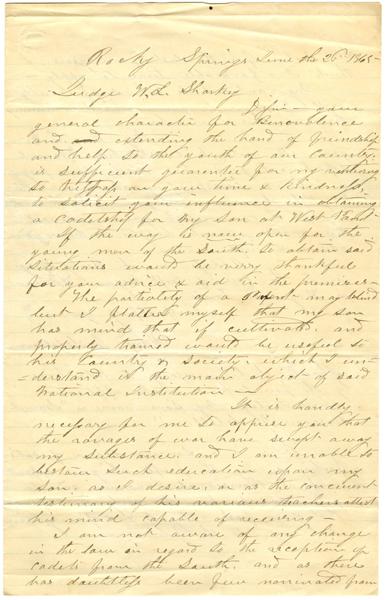 Rocky Springs June the 26th 1865-
Judge W. L. Sharkey
Dr Sir - your
general character for Benevolence
and and extending the hand of friendship
and help to the youth of our Country
is sufficient guarantee for my venturing
to trespass on your time & kindness,
to solicit your influence in obtaining
a Cadetship for my son at West Point-
If the way is now open for the
young men of the South to obtain said
situations would be very thankful
for your advice & aid in the premises-
The partiality of a parent may blind
but I flatter myself that my son
has mind that if cultivated and
properly trained would be useful to
his Country & Society, which I un=
=derstand is the main object of said
National Institution -
It is hardly
necessary for me to apprise you that
the ravages of war have swept away
my substance, and I am unable to
bestow such education upon my
son, as I desire, or as the concurrent
testimony of his various teachers attest
his mind capable of receiving -
I am not aware of any change
in the law in regard to the reception of
cadets from the South, and as there
has doubtless been few nominated from